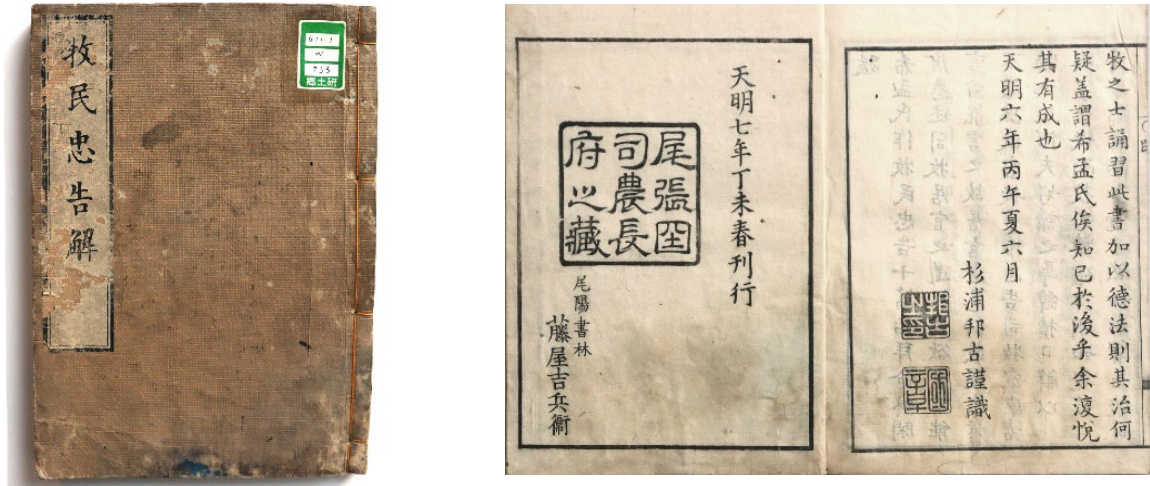 牧民忠告解
W
735
郷土研
牧之士誦習此書加以德法則其治何
疑盖謂希孟氏俟知己於後乎余復悅
其有成也
天明六年丙午夏六月
杉浦邦古謹識
天明七年丁未春刊行
尾張国
司農長
府之藏
尾陽書林
藤屋吉兵衞